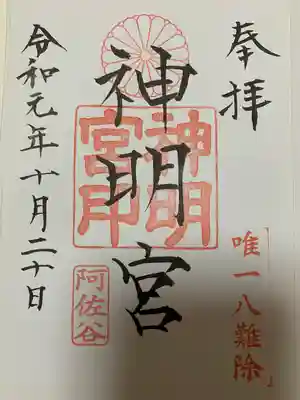 奉拝
「唯一八難除」
神明宮
神明
宮印
阿佐谷
令和元年十月二十日